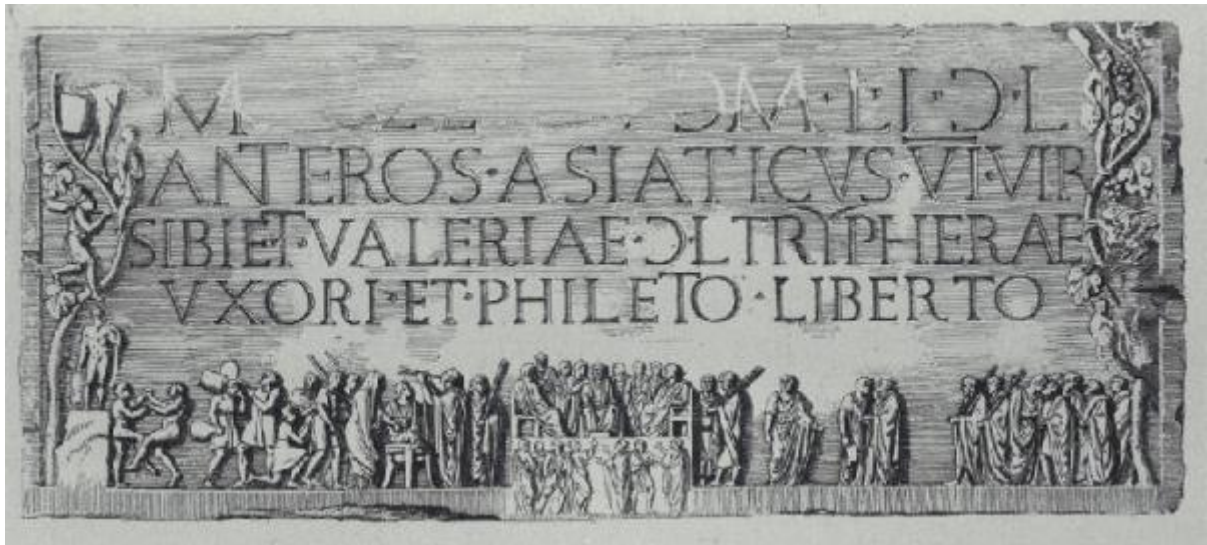 M M · L · Ɔ · L
ANTEROS · ASIATICVS · VI · VIR
SIBI ET · VALERIAE · Ɔ · L TRYPHERAE
VXORI · ET · PHILETO · LIBERTO